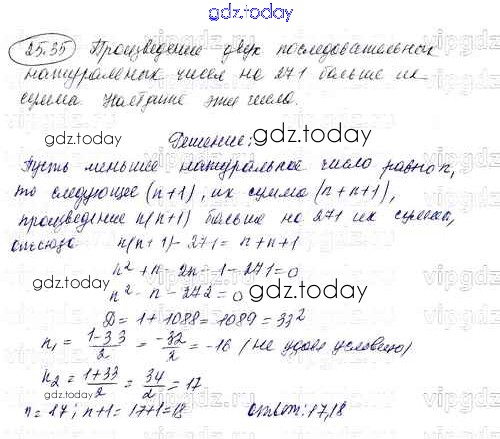 gdz.today
25.35 Произведение двух последовательных
натуральных чисел на 271 больше их
суммы. Найдите эти числа.
gdz.today
gdz.today
Решение:
Пусть меньшее натуральное число равно n,
то следующее (n+1), их сумма (n+n+1),
произведение n(n+1) больше на 271 их суммы,
отсюда n(n+1)-271 = n+n+1
gdz.today
n²+n-2n-1-271=0
n²-n-272=0
gdz.today
D=1+1088=1089=33²
n₁ = (1-33)/2 = -32/2 = -16 (не удов условию)
n₂ = (1+33)/2 = 34/2 = 17
n=17; n+1=17+1=18 ответ: 17,18
gdz.today
gdz.today
vipgdz